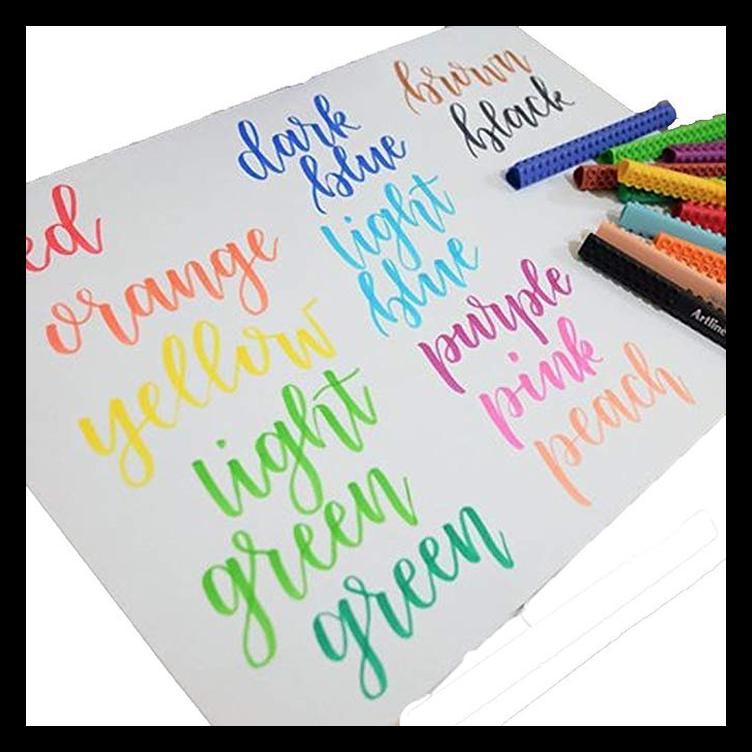 ed
orange
yellow
light
green
green
dark
blue
light
blue
brown
black
purple
pink
peach
Artline